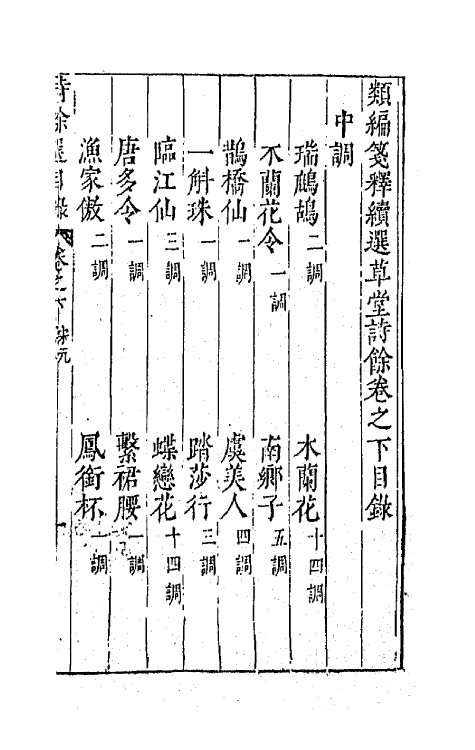 類編箋釋續選草堂詩餘卷之下目錄
中調
瑞鷓鴣 二調　木蘭花 十四調
木蘭花令 一調　南鄉子 五調
鵲橋仙 一調　虞美人 四調
一斛珠 一調　踏莎行 三調
臨江仙 三調　蝶戀花 十四調
唐多令 一調　繫裙腰 一調
漁家傲 二調　鳳銜杯 一調
詩餘選目錄 卷之下 一